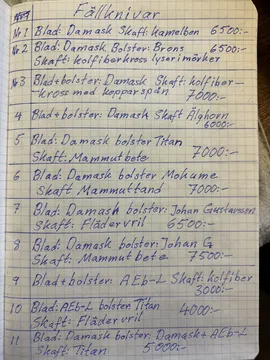 Fällknivar
Nr 1 Blad: Damask Skaft: Kamelben 6500:-
Nr 2 Blad: Damask Bolster: Brons 6500:-
Skaft: kolfiberkross lyser i mörker
Nr 3 Blad+bolster: Damask Skaft: kolfiber-
kross med kopparspån
7000:-
4 Blad+bolster: Damask Skaft Älghorn
6000:-
5 Blad: Damask bolster Titan
Skaft: Mammutbete 7000:-
6 Blad: Damask bolster Mokume
Skaft Mammuttand 7000:-
7 Blad: Damask bolster: Johan Gustavsson
Skaft: Flädervril 6500:-
8 Blad: Damask bolster: Johan G
Skaft: Mammutbete 7500:-
9 Blad+bolster: AEb-L Skaft: kolfiber
3000:-
10 Blad: AEb-L bolster Titan
Skaft: Flädervril 4000:-
11 Blad: Damask bolster: Damask+AEb-L
Skaft: Titan 5000:-